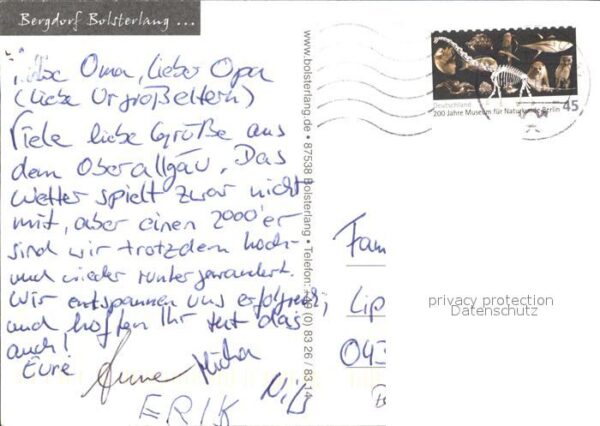 Bergdorf Bolsterlang ...
Liebe Oma, lieber Opa
(liebe Urgroßeltern)
Viele liebe Grüße aus
dem Oberallgäu. Das
Wetter spielt zwar nicht
mit, aber einen 2000'er
sind wir trotzdem hoch-
und wieder runtergewandert.
Wir entspannen uns erfolgreich,
und hoffen Ihr tut das
auch!
Eure
Anne Micha
ERIK Nils
www.bolsterlang.de • 87538 Bolsterlang • Telefon: +49 (0) 83 26 / 83 14
Deutschland
45
200 Jahre Museum für Naturkunde Berlin
Fam
Lip
043
privacy protection
Datenschutz